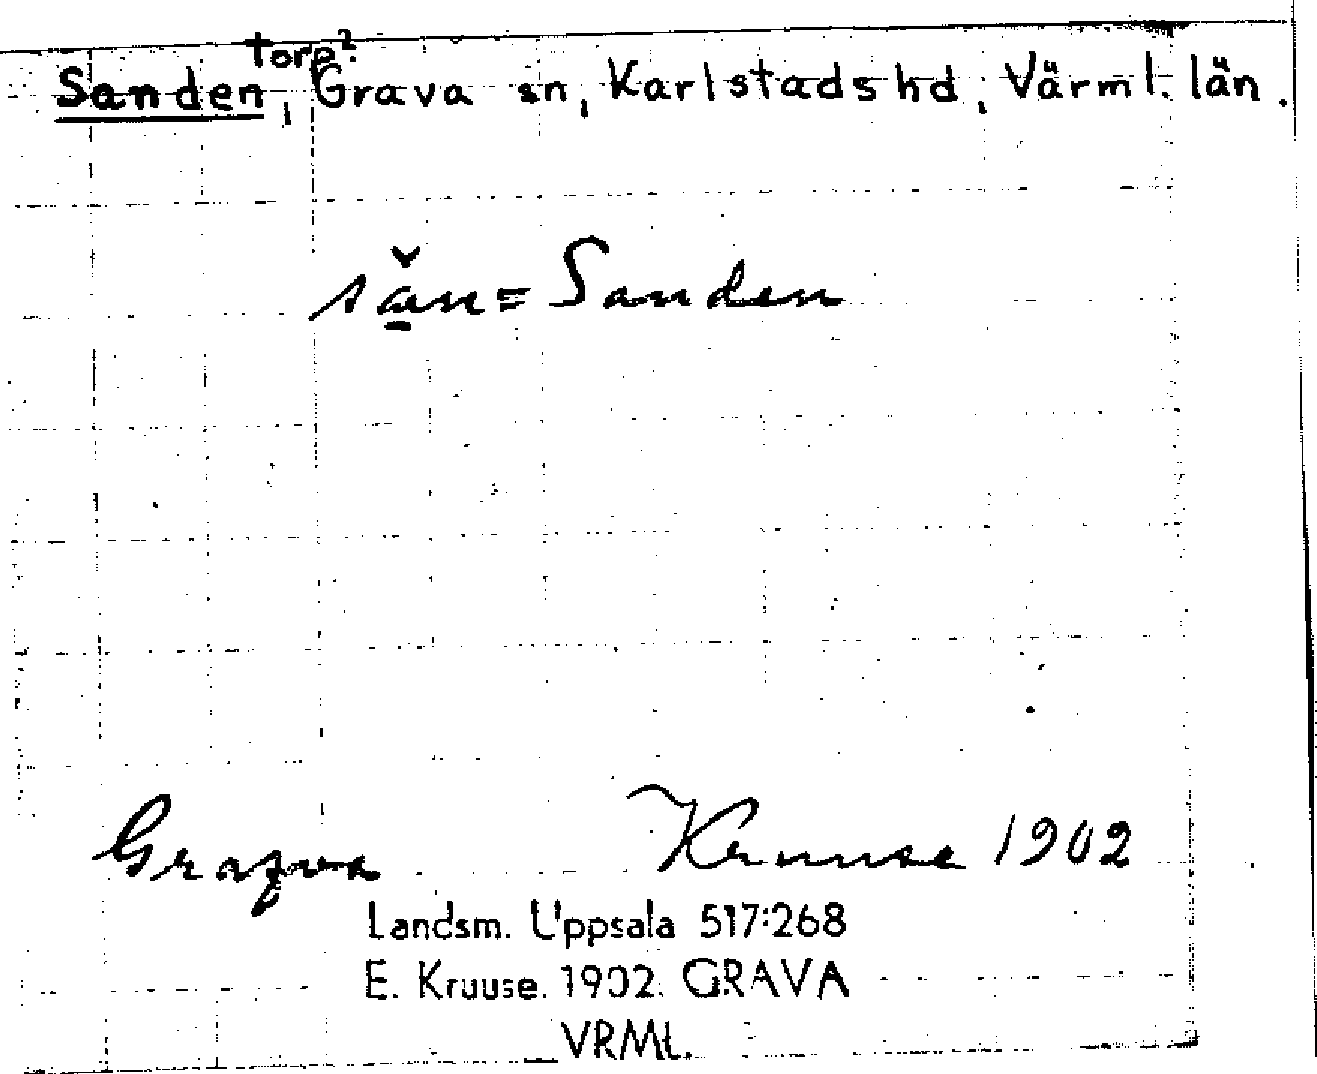 torp?
Sanden, Grava sn, Karlstads hd, Värml. län.
sǎ̱n = Sanden
Grafva Kruuse 1902
Landsm. Uppsala 517:268
E. Kruuse. 1902. GRAVA
VRML.